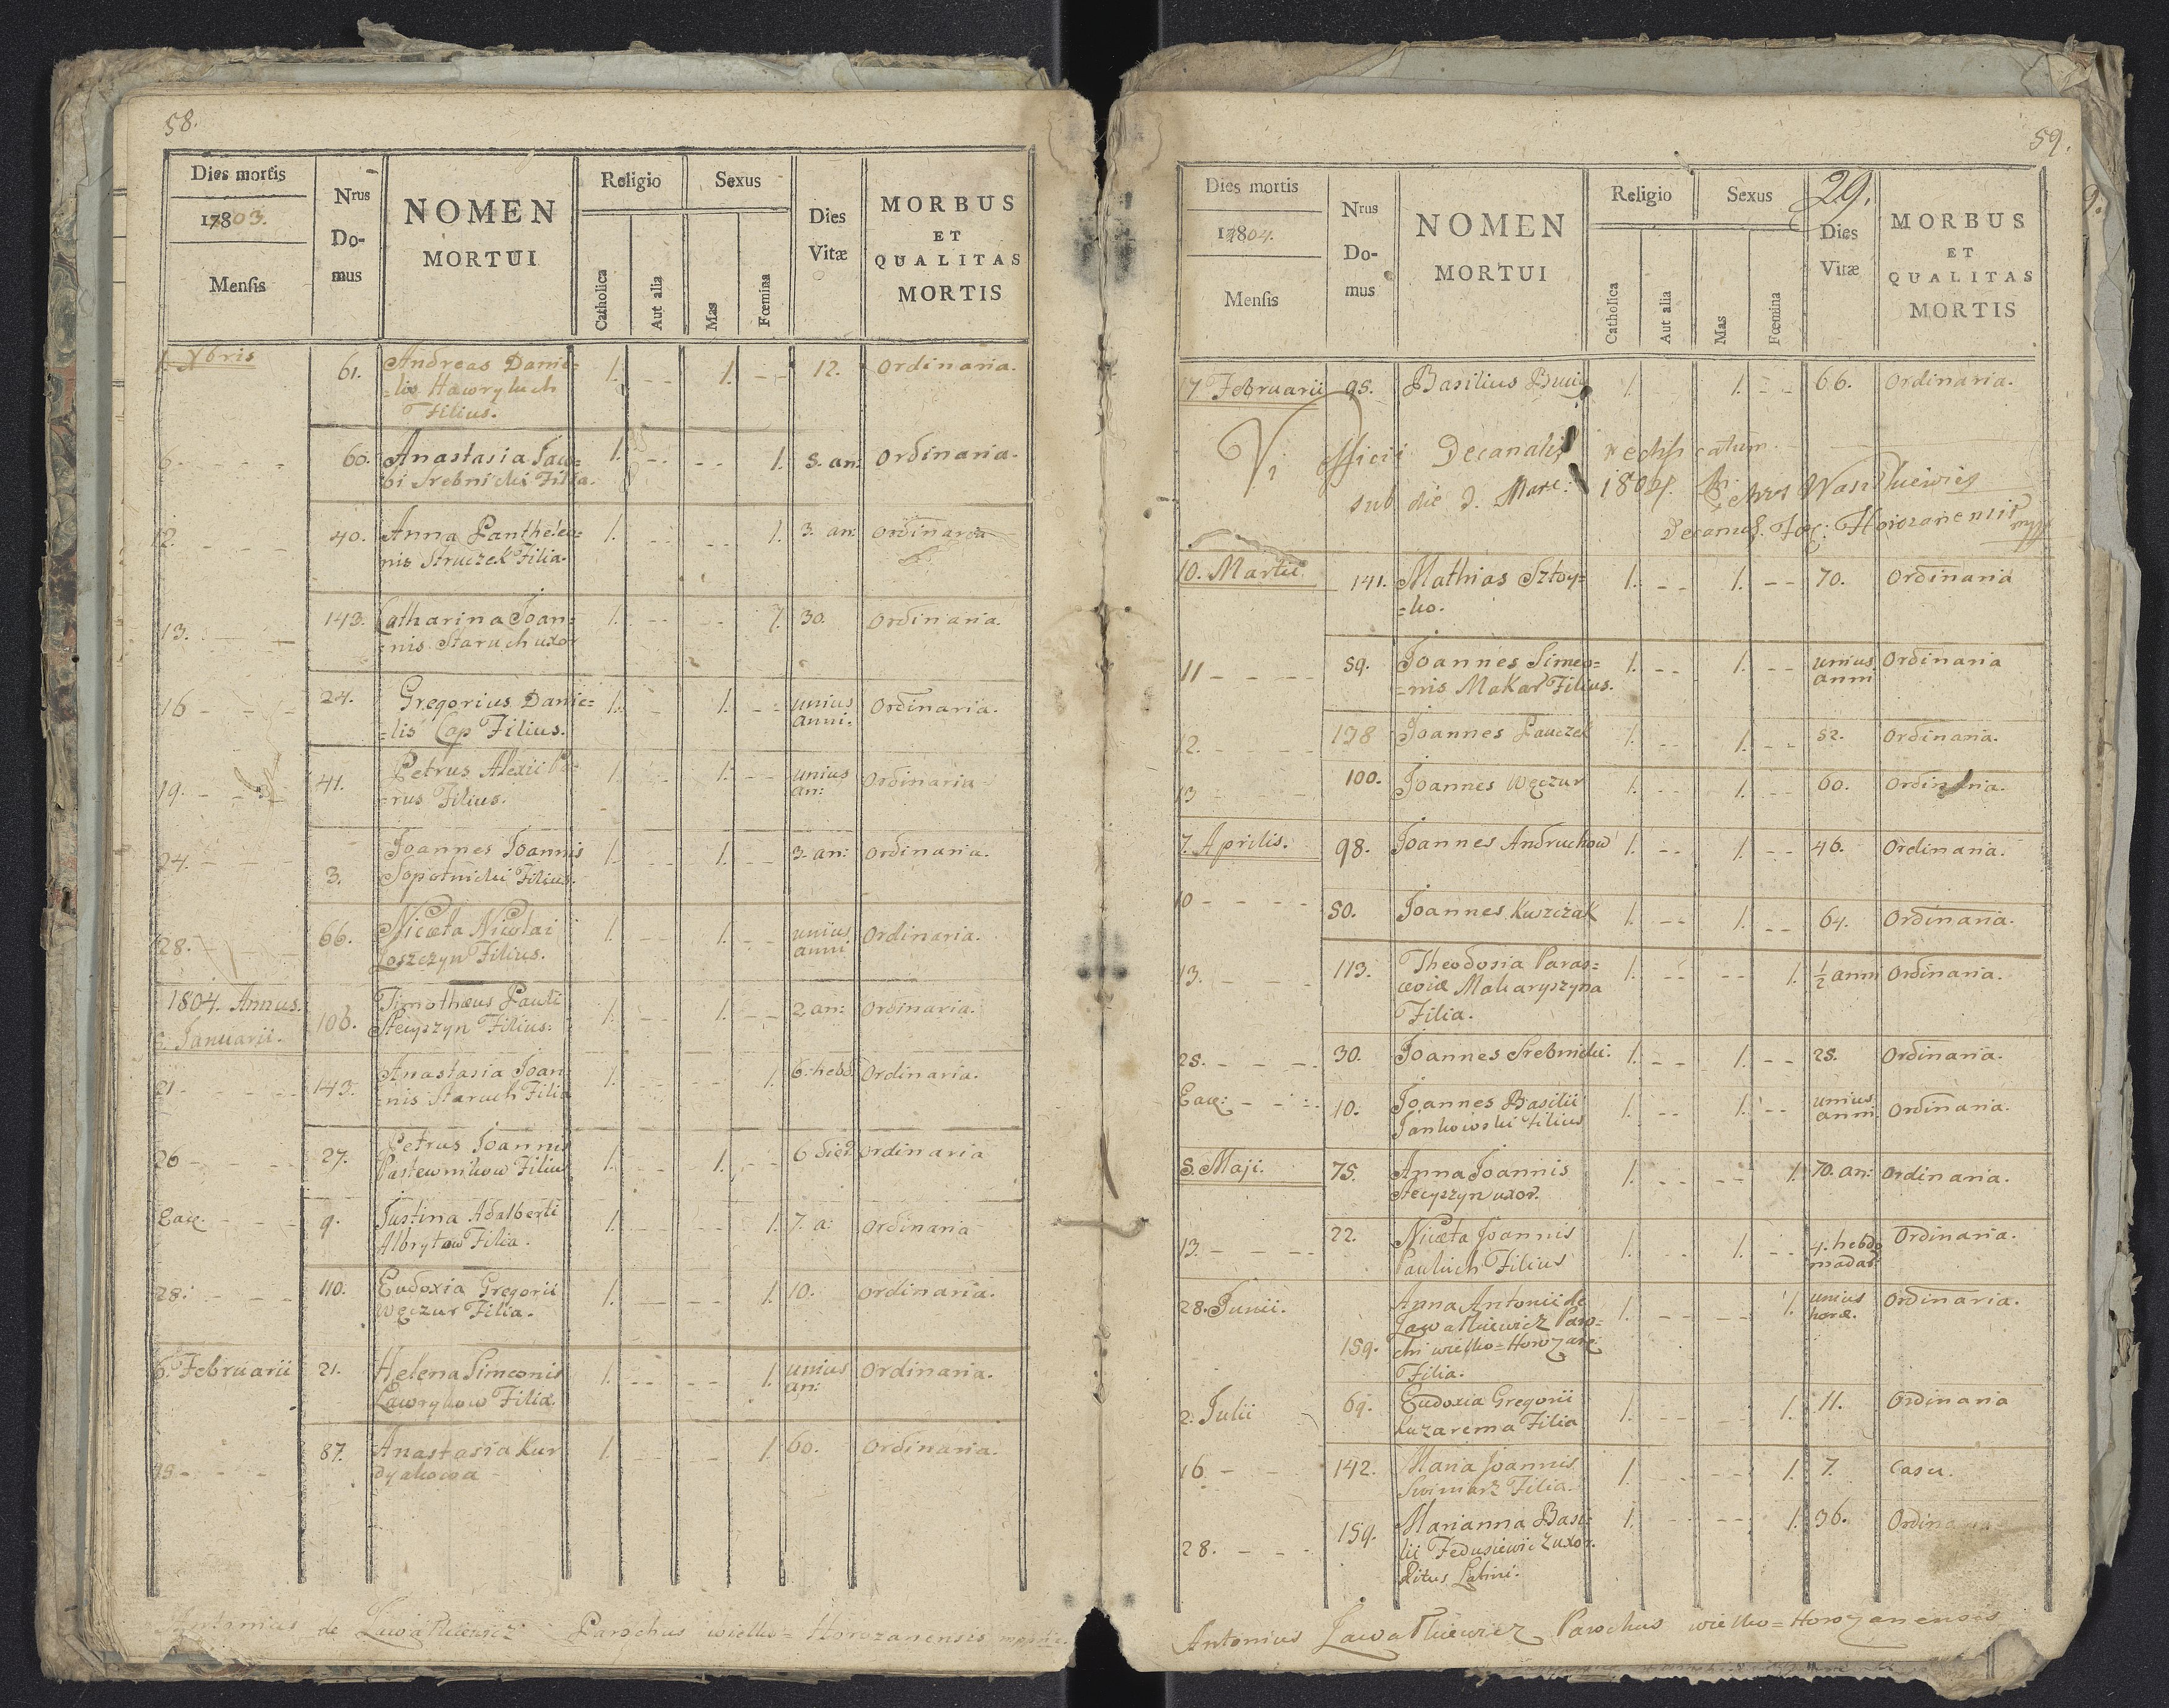 58.
Dies mortis
17803.
Mensis
Nrus
Do-
mus
NOMEN
MORTUI
Religio
Catholica
Aut alia
Sexus
Mas
Fœmina
Dies
Vitæ
MORBUS
ET
QUALITAS
MORTIS
1. Xbris 61. Andreas Danie= 1. - - 1. - - 12. Ordinaria.
=lis Hawryluch
Filius.
6. - - - 60. Anastasia Jaco= 1. - - - - 1. 5. an: Ordinaria.
bi Srebnicki Filia.
12. - - - 40. Anna Panthelei= 1. - - - - 1. 3. an: Ordinaria
nis Struczek Filia.
13. - - - 143. Catharina Joan= 1. - - - - 1. 30. Ordinaria.
=nis Staruch uxor
16 - - - 24. Gregorius Danie= 1. - - 1. - - unius Ordinaria.
=lis Cap Filius. anni.
19. - - 41. Petrus Alexii 1. - - 1. - - unius Ordinaria
=rus Filius. an:
24. - - - 3. Joannes Joannis 1. - - 1. - - 3. an: Ordinaria.
Sopotnicki Filius.
28. - - 66. Nicæta Nicolai 1. - - 1. - - unius Ordinaria.
Loszczyn Filius. anni
1804. Annus.
5. Januarii. 106. Timothæus Pauli 1. - - 1. - - 2 an: Ordinaria.
Stecyszyn Filius:
21 - - - 143. Anastasia Joan 1. - - - - 1. 6. hebd. Ordinaria.
=nis Staruch Filia
26 - - - 27. Petrus Joannis 1. - - 1. - - 6 dier. Ordinaria
Pastewnikow Filius
Eaq. - - - 9. Justina Adalberti 1. - - - - 1. 7. a: Ordinaria
Albrytow Filia.
28. - - - 110. Eudoxia Gregorii 1. - - - - 1. 10. Ordinaria.
Węczur Filia.
6. Februarii 21. Helena Simeonis 1. - - - - 1. unius Ordinaria.
Lawrykow Filia. an:
15 - - - 87. Anastasia Kur 1. - - - - 1. 60. Ordinaria.
dyakowa
Antonius de Lawatkiewicz Parochus wielko=Horozanensis mpria.
59.
29.
Dies mortis
17804.
Mensis
Nrus
Do-
mus
NOMEN
MORTUI
Religio
Catholica
Aut alia
Sexus
Mas
Fœmina
Dies
Vitæ
MORBUS
ET
QUALITAS
MORTIS
17 Februarii 95. Basilius 1. 1. - - 66. Ordinaria.
Vi officii Decanalis
sub die 1804. Petrus Wasilkiewicz
Decanus Horozanensis mpp
10. Martii 141. Mathias Sztoy= 1. - - 1. - - 70. Ordinaria
=ko.
11 - - - 59. Joannes Simeo= 1. - - 1. - - unius Ordinaria
=nis Makar Filius. anni
12. - - - 138 Joannes Pauczek 1. - - 1. - - 52. Ordinaria.
13 - - - 100. Joannes Węczur 1. - - 1. - - 60. Ordinaria.
7. Aprilis. 98. Joannes Andruchow 1. - - 1. - - 46. Ordinaria.
10 - - - - 50. Joannes Kuszczak 1. - - 1. - - 64. Ordinaria.
13. - - - 113. Theodosia Paras= 1. - - - - 1. ½ anni Ordinaria.
ceviæ Makaryszyna
Filia.
25. - - - 30. Joannes Srebnicki. 1. - - 1. - - 25. Ordinaria.
Eaq: - - - 10. Joannes Basilii 1. - - 1. - - unius Ordinaria.
Jankowski Filius anni.
5. Maji. 75. Anna Joannis 1. - - - - 1. 70. an: Ordinaria.
Stecyszyn uxor.
13. - - - 22. Nicæta Joannis 1. - - 1. - - 4. hebdo Ordinaria.
Pauluch Filius madar.
28. Junii. 159. Anna Antonii de 1. - - - - 1. unius Ordinaria.
Lawatkiewicz Paro= horæ.
chi wielko=Horozanæ
Filia.
2. Julii 69. Eudoxia Gregorii 1. - - - - 1. 11. Ordinaria
Kuzarema Filia
16 - - 142. Maria Joannis 1. - - - - 1. 7. Casu.
Swimarz Filia.
28. - - - 159. Marianna Basi= 1. - - - - 1. 36. Ordinaria
lii Fedusiewicz uxor.
Ritus Latini.
Antonius Lawatkiewicz Parochus wielko=Horozanensis